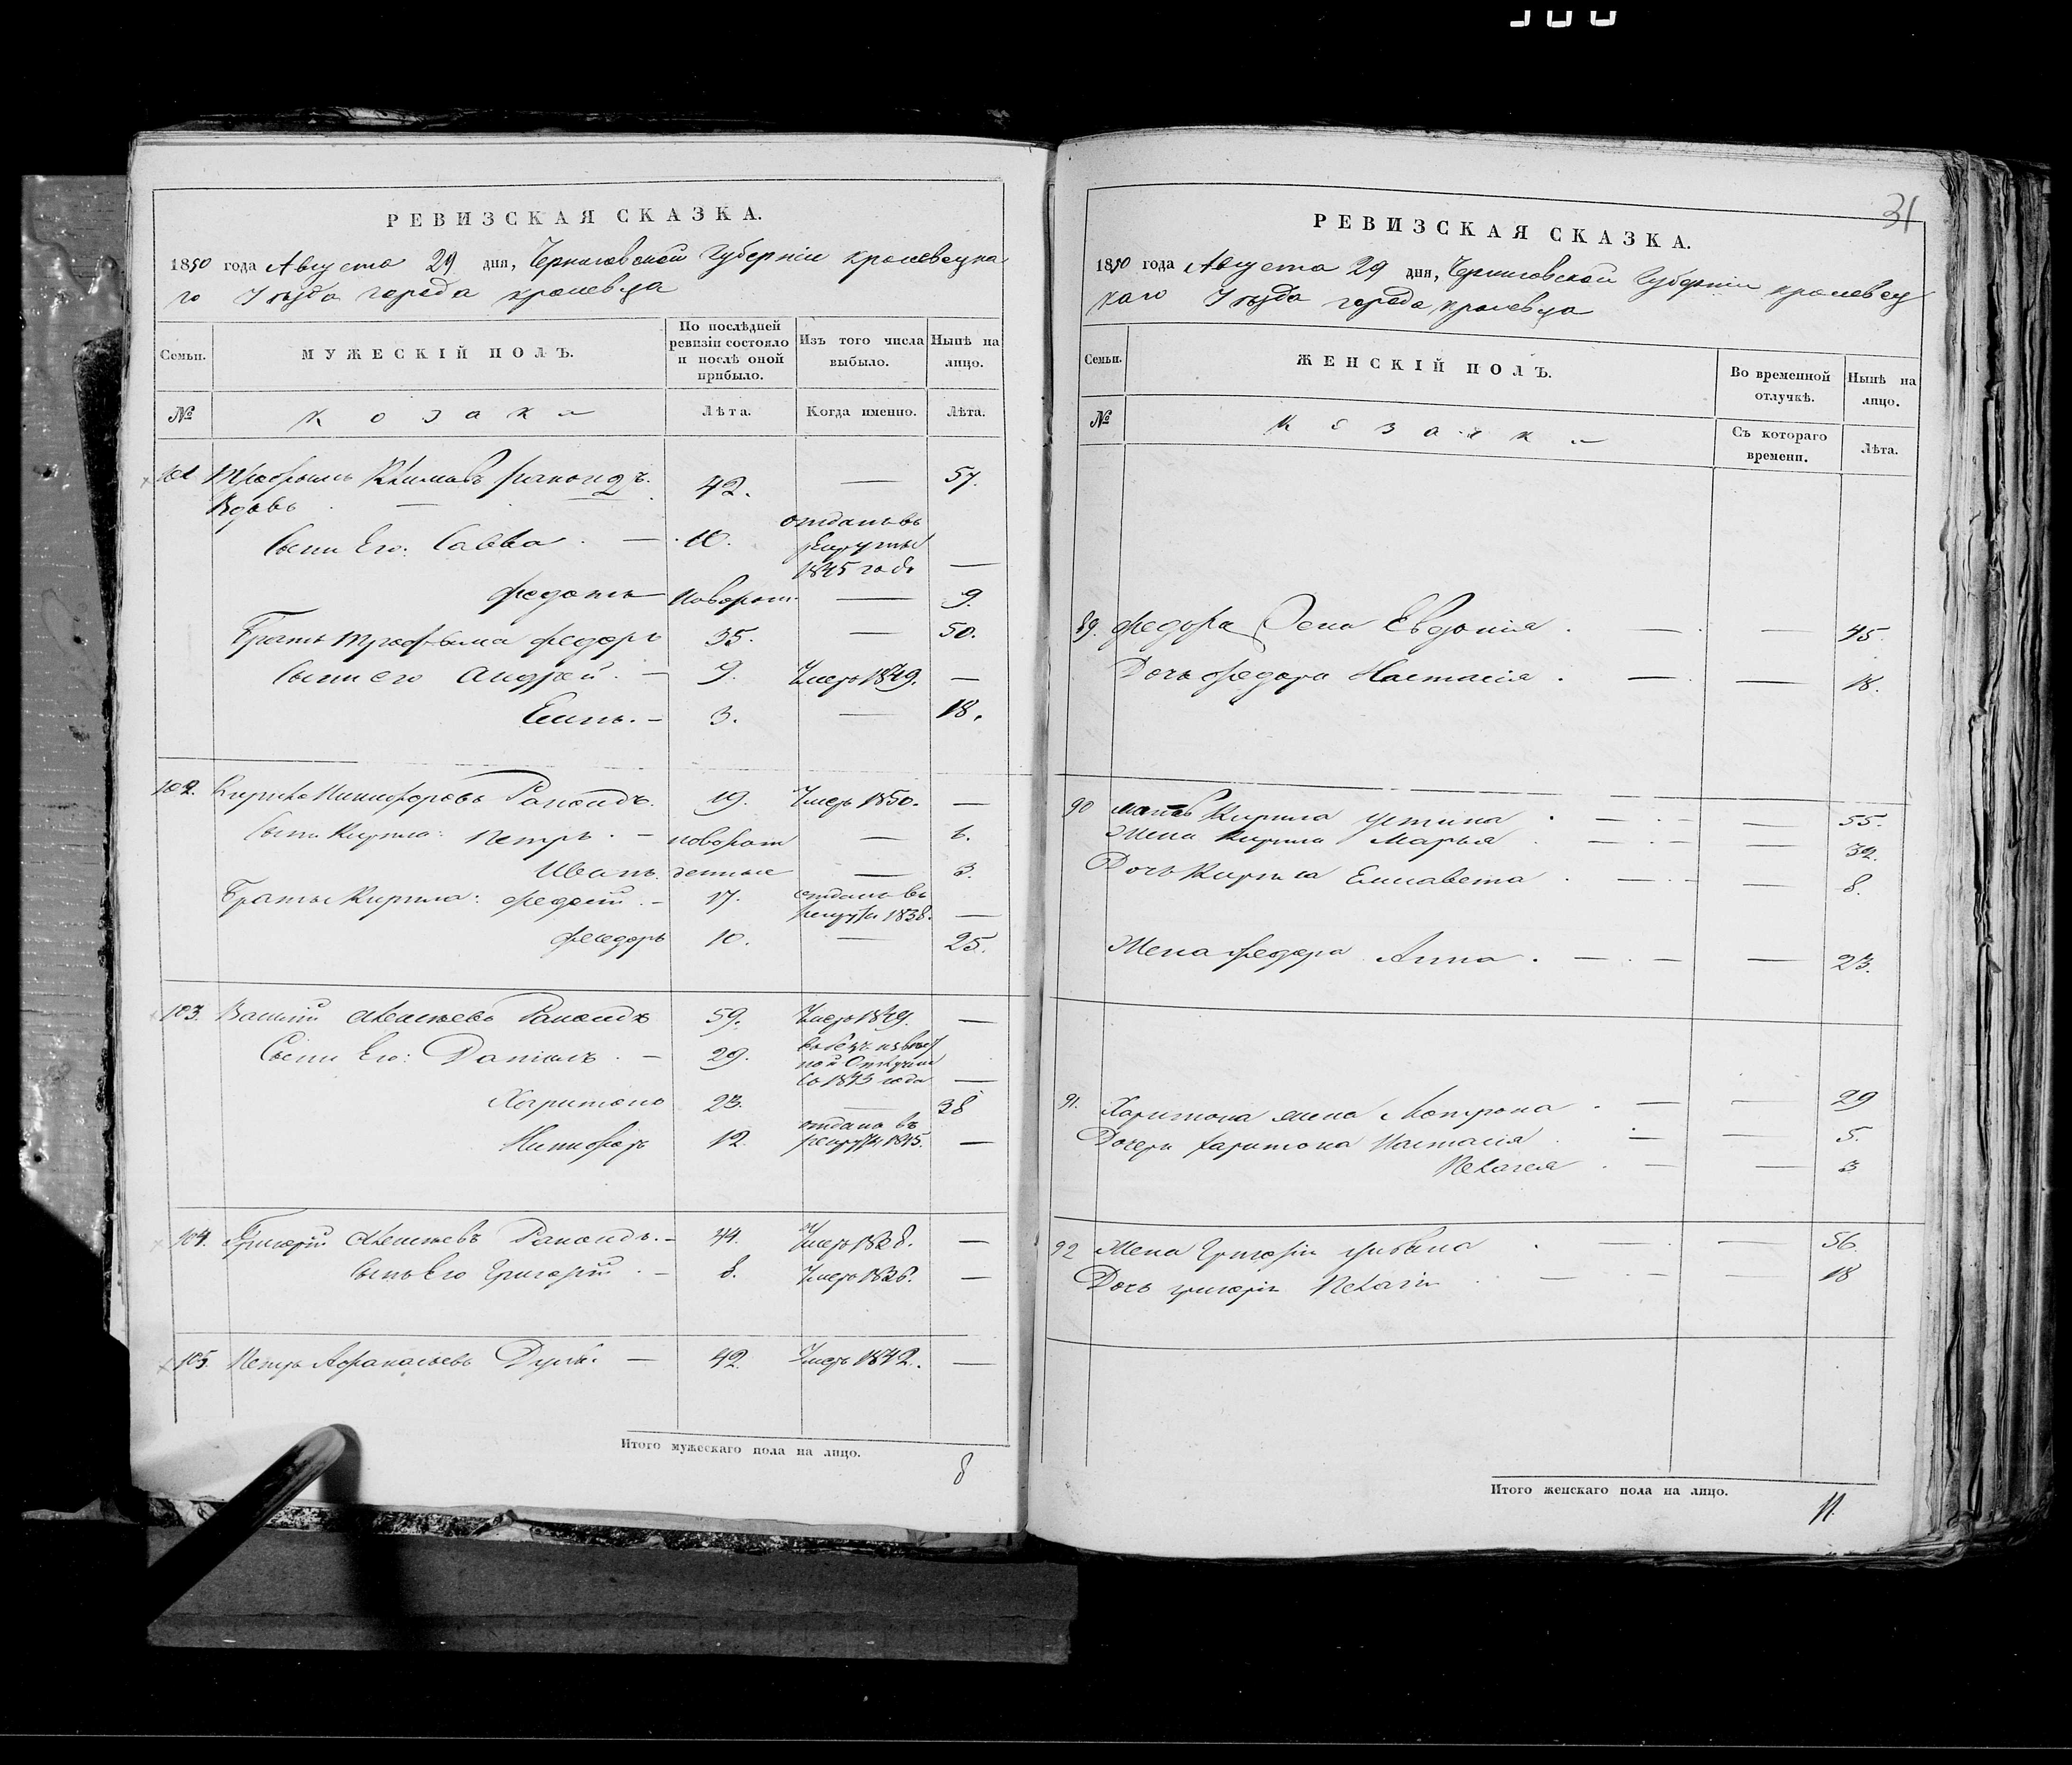 31
РЕВИЗСКАЯ СКАЗКА.
1850 года Августа 29 дня, Черниговской Губерніи кролевецка
го Уѣзда города кролевца
Семьи.
МУЖЕСКІЙ ПОЛЪ.
По послѣдней ревизіи состояло и послѣ оной прибыло.
Изъ того числа выбыло.
Нынѣ на лицо.
№
козаки
Лѣта.
Когда именно.
Лѣта.
101 Трофимъ Климовъ 42. — 57.
Вдовъ
Сыны Его: Савва — 10. отданъ въ рекруты 1845 года —
Федотъ новорож — 9.
Братъ Трофима Федоръ 35. — 50.
Сыны его Андрей — 9. Умеръ 1849. —
3. — 18.
102. Кирило Никифоровъ 19. Умеръ 1850. —
Сыны Кирила: Петръ — новорож — 6.
Иванъ. денные — 3.
Братья Кирила: 17. отданъ въ рекруты 1838. —
Федоръ 10. — 25.
103. Василій Алексѣевъ 59. Умеръ 1849. —
Сыны Его: Даніилъ — 29. —
Со 1843 года
Харитонъ 23. — 38
Никифоръ 12. отданъ въ рекруты 1845. —
104. Григорій Алексѣевъ 44. —
Сынъ Его Григорій — 8. Умеръ 1836. —
105. Петръ Афанасьевъ — 42. Умеръ 1842. —
Итого мужескаго пола на лицо. 8
РЕВИЗСКАЯ СКАЗКА.
1850 года Августа 29 дня, Черниговской Губерніи кролевец
каго Уѣзда города кролевца
Семьи.
ЖЕНСКІЙ ПОЛЪ.
Во временной отлучкѣ.
Нынѣ на лицо.
№
козачки
Съ котораго времени.
Лѣта.
89. Федора Жена Евдокія — — 45.
Дочь Федора Настасія — — 18.
90 мать Кирила Устина — — 55.
Жена Кирила Марья — — 32.
Дочь Кирила Елисавета — — 8.
Жена Федора Анна — — 23.
91. Харитона жена Мотрона — — 29
Дочери Харитона Настасія — — 5.
Пелагея — — 3
92 Жена Григорія — — 56.
Дочь Григорія Пелагія — — 18
Итого женскаго пола на лицо. 11.